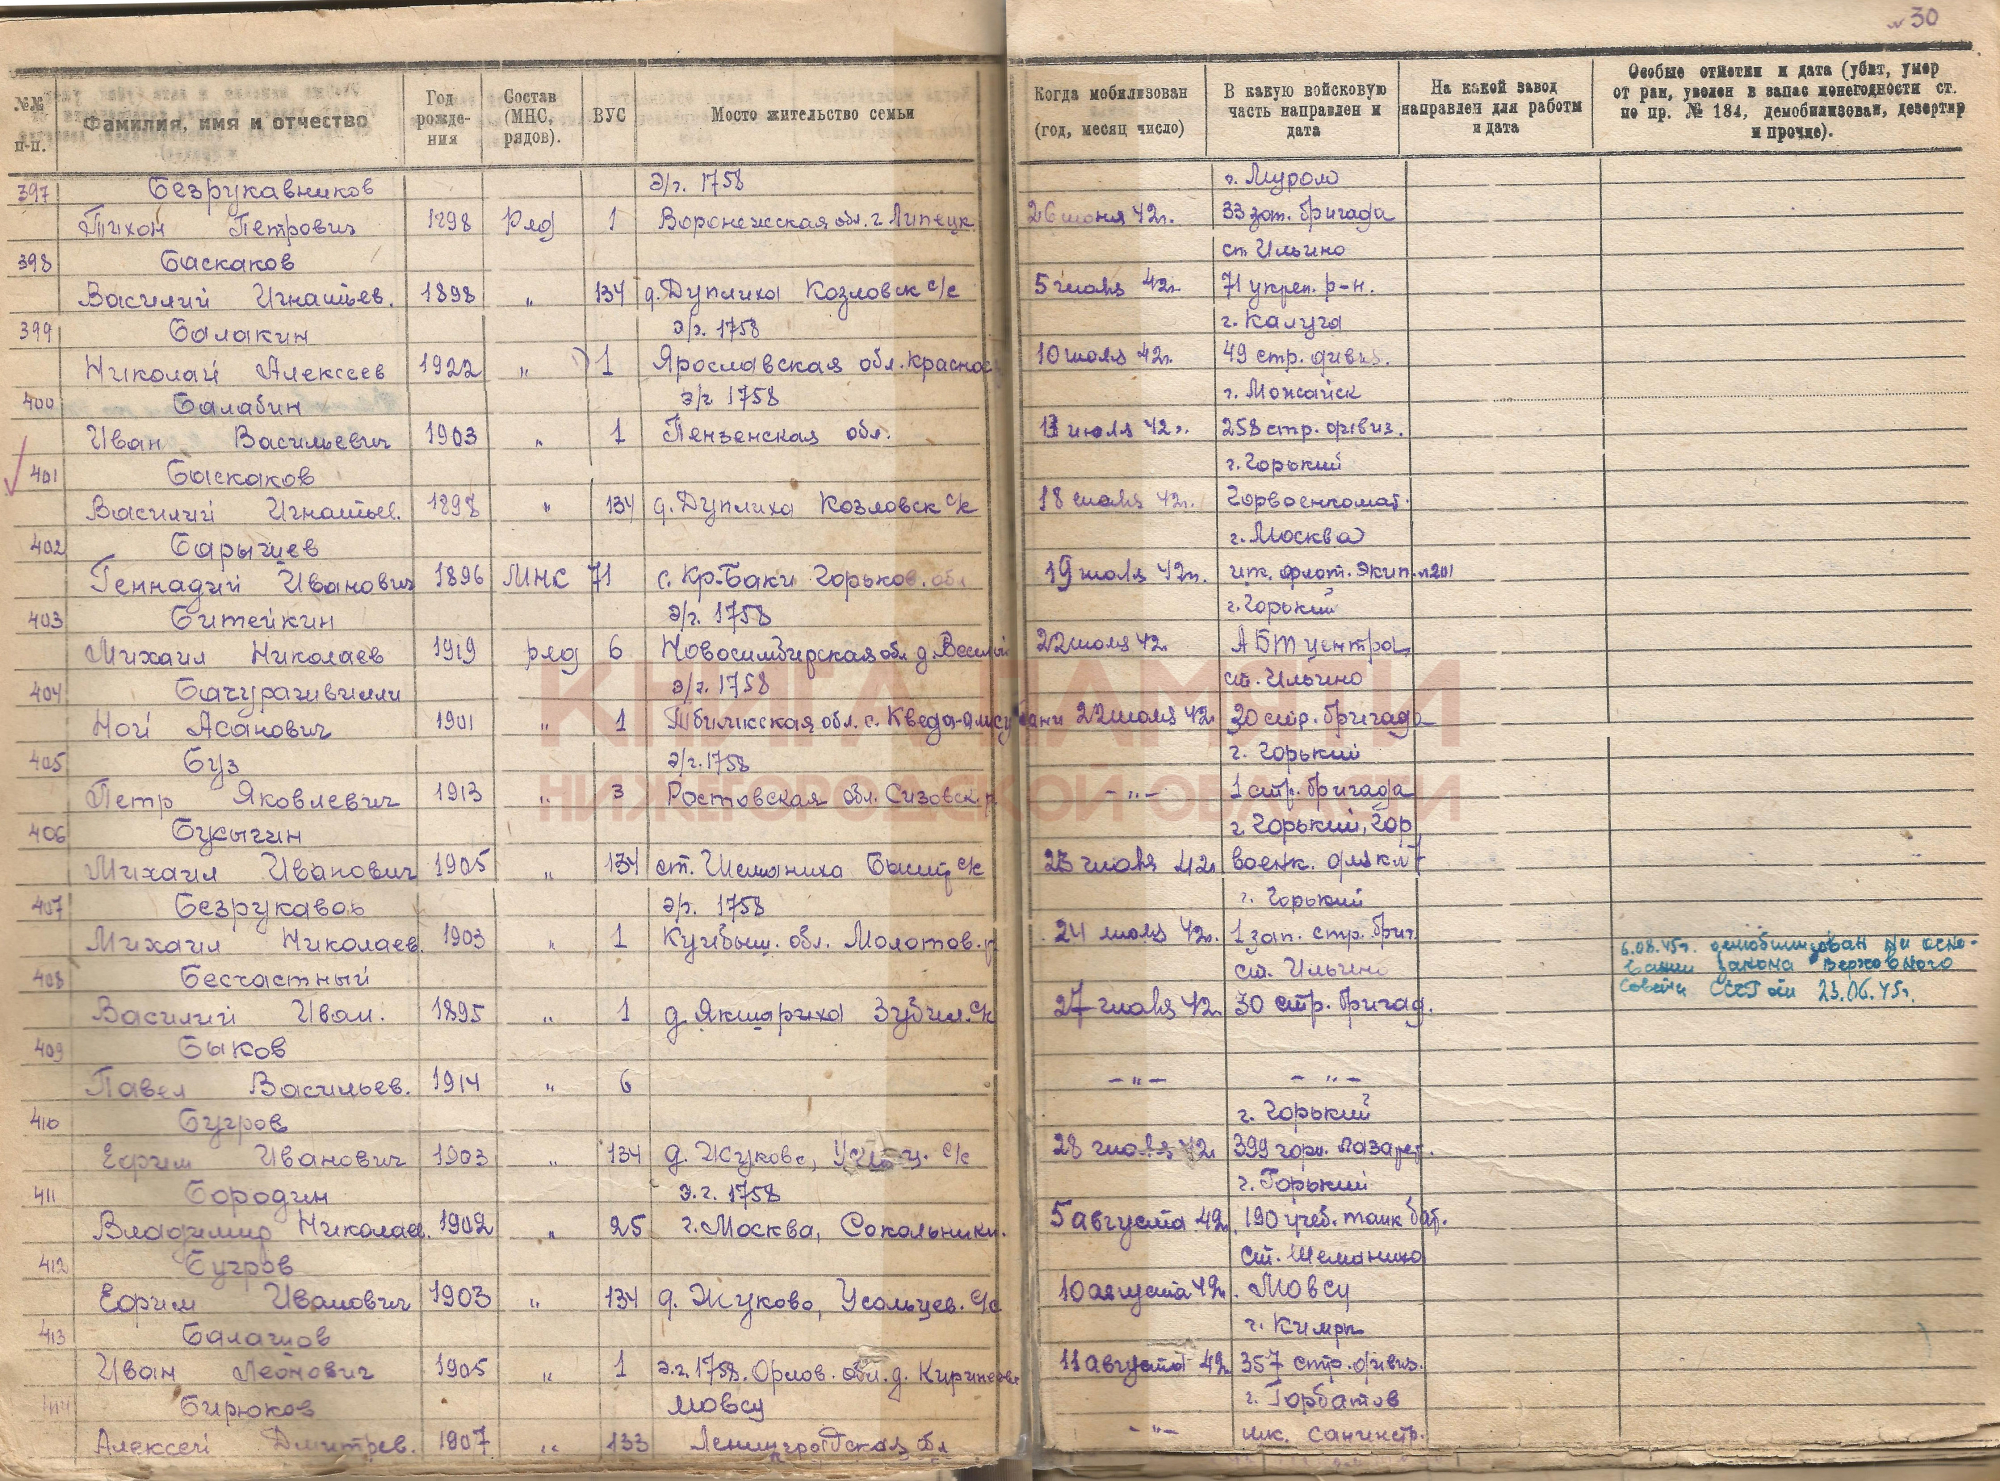 30
№№ п-п. Фамилия, имя и отчество Год рожде-ния Состав (МНС, рядов). ВУС Мосто жительство семьи Когда мобилизован (год, месяц число) В какую войсковую часть направлен и дата На какой завод направлен для работы и дата Особые отметки и дата (убит, умер от ран, уволен в запас понегодности ст. по пр. № 184, демобилизован, дезертир и прочие).
397 Безрукавников э/г. 1758 г. Муром
Тихон Петрович 1898 Ряд 1 Воронежская обл. г. Липецк 26 июня 42г. 33 зап. бригада
398 Баскаков ст. Ильино
Василий Игнатьев. 1898 „ 134 д. Дуплиха Козловск с/с 5 июля 42г. 71 укреп. р-н.
399 Балакин э/г. 1758 г. Калуга
Николай Алексеев 1922 „ 1 Ярославская обл. 10 июля 42г. 49 стр. дивиз.
400 Балабин э/г 1758 г. Можайск
Иван Васильевич 1903 „ 1 Пензенская обл. 13 июля 42г. 258 стр. дивиз.
401 Баскаков г. Горький
Василий Игнатьев. 1898 „ 134 д. Дуплиха Козловск с/с 18 июля 42г. Горвоенкомат.
402 Барышев г. Москва
Геннадий Иванович 1896 МНС 71 с. Кр-Баки Горьков. обл 19 июля 42г. флот. экип. №201
403 Битейкин э/г. 1758 г. Горький
Михаил Николаев 1919 ряд 6 Новосимбирская обл д. Веселый 22 июля 42. АБТ центра
404 Бачурашвилли э/г. 1758 ст. Ильино
Ной Асанович 1901 „ 1 Тбилисская обл. с. 22 июля 42г 30 стр. бригада
405 Буз э/г. 1758 г. Горький
Петр Яковлевич 1913 „ 3 Ростовская обл. Сизовск. р — „ — 1 стр. бригада
406 Бусыгин г. Горький, Гор
Михаил Иванович 1905 „ 134 ст. Шеманиха с/с 23 июля 42г военк. для
407 Безрукавов э/г. 1758 г. Горький
Михаил Николаев. 1903 „ 1 Куйбыш. обл. Молотов. р 24 июля 42г. 1 зап. стр. бриг.
408 Бесчастный ст. Ильино 6.08.45г. демобилизован на осно-
Василий Иван. 1895 „ 1 д. Якшариха Зубил. с/с 27 июля 42г 30 стр. бригад. вании закона Верховного
Совета СССР от 23.06.45г.
409 Быков
Павел Васильев. 1914 „ 6 — „ — — „ —
410 Бугров г. Горький
Ефрим Иванович 1903 „ 134 д. Жуково, с/с 28 июля 42 399 лазарет.
411 Бородин э.г. 1758 г. Горький
Владимир Николаев. 1902 „ 25 г. Москва, Сокольники. 5 августа 42г. 190 учеб. танк бат.
412 Бугров ст. Шеманиха
Ефрим Иванович 1903 „ 134 д. Жуково, Усольцев. с/с 10 августа 42г. Мовсу
413 Балашов г. Кимры
Иван Леонович 1905 „ 1 э.г. 1758. Орлов. обл. д. 11 августа 42г 357 стр. дивиз.
414 Бирюков Мовсу г. Горбатов
Алексей Дмитрев. 1907 „ 133 Ленинградская обл — „ — санинстр.
КНИГА ПАМЯТИ
НИЖЕГОРОДСКОЙ ОБЛАСТИ